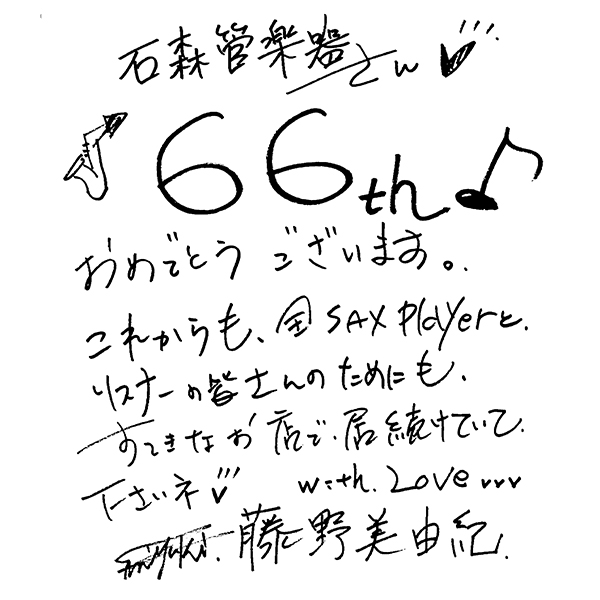 石森管楽器さん
66th
おめでとうございます。
これからも、全SAX Playerと、
リスナーの皆さんのためにも、
すてきなお店で、居続けていて
下さいネ with. Love
藤野美由紀.